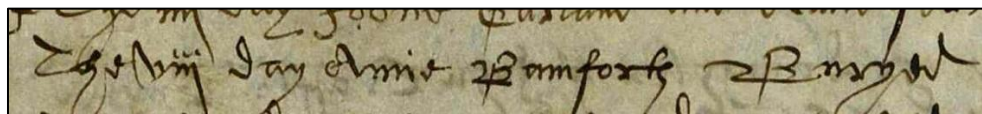 The viij day Annie Bamforth Buryed